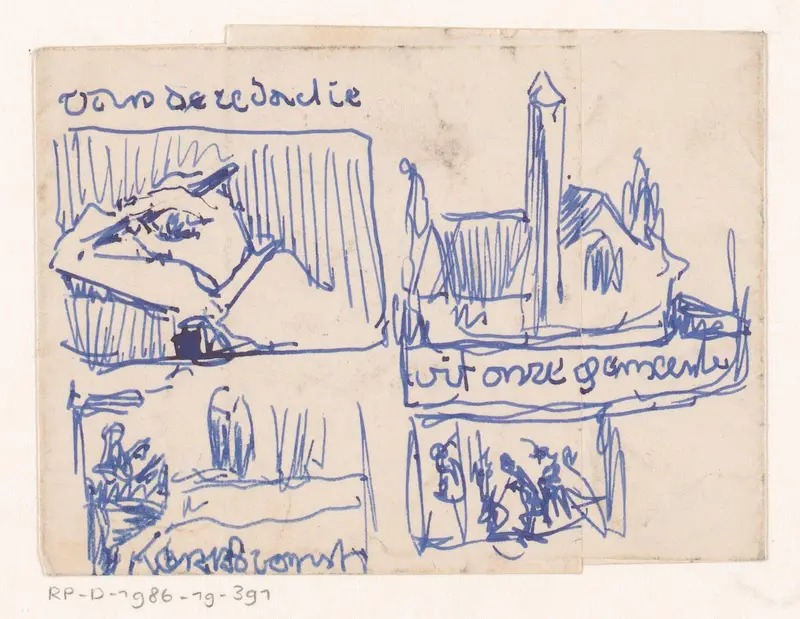 van de redactie
uit onze gemeente
RP-D-1986-19-391